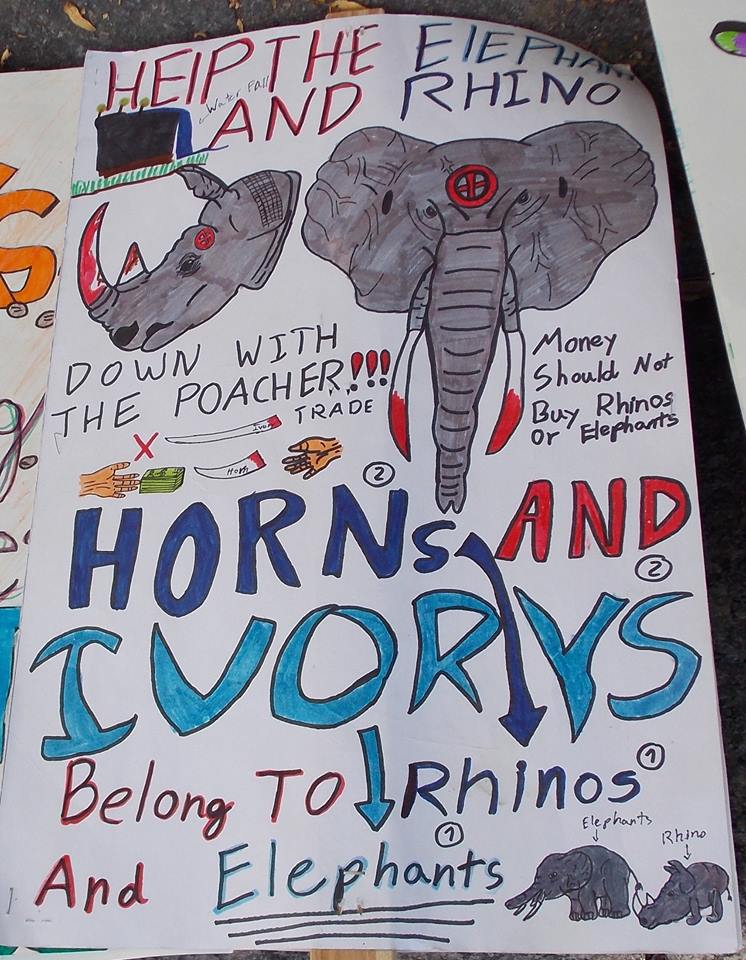 HElP THE ElEPHAN
Water Fall
AND RHINO
DOWN WITH
THE POACHER!!!
TRADE
Money
Should Not
Buy Rhinos
Or Elephants
X
Ivory
Horn
2
HORNs AND
2
IVORYS
Belong To Rhinos
1
And Elephants
1
Elephants
Rhino